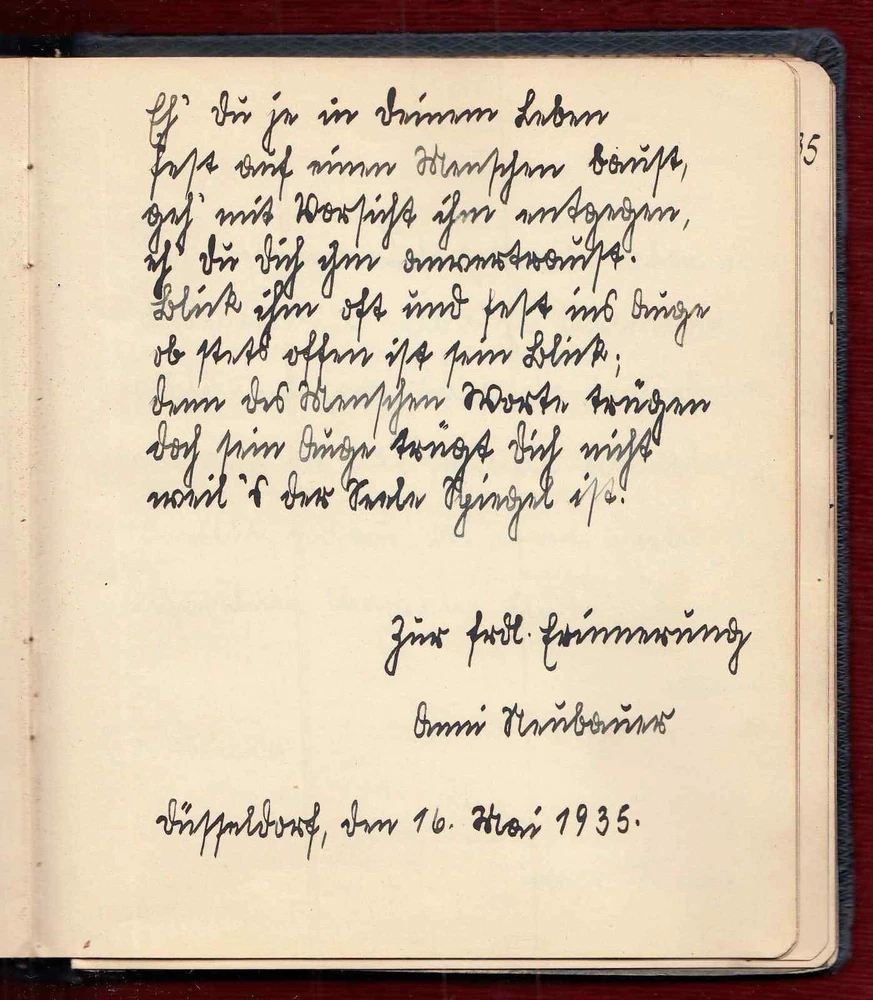 Eh' du je in deinem Leben
fest auf einen Menschen baust,
geh' mit Vorsicht ihm entgegen,
eh' du dich ihm anvertraust.
Blick ihm oft und fest ins Auge
ob stets offen ist sein Blick;
denn des Menschen Worte trügen
doch sein Auge trügt dich nicht
weil 's der Seele Spiegel ist.
Zur frdl. Erinnerung
Anni Neubauer
Düsseldorf, den 16. Mai 1935.
35